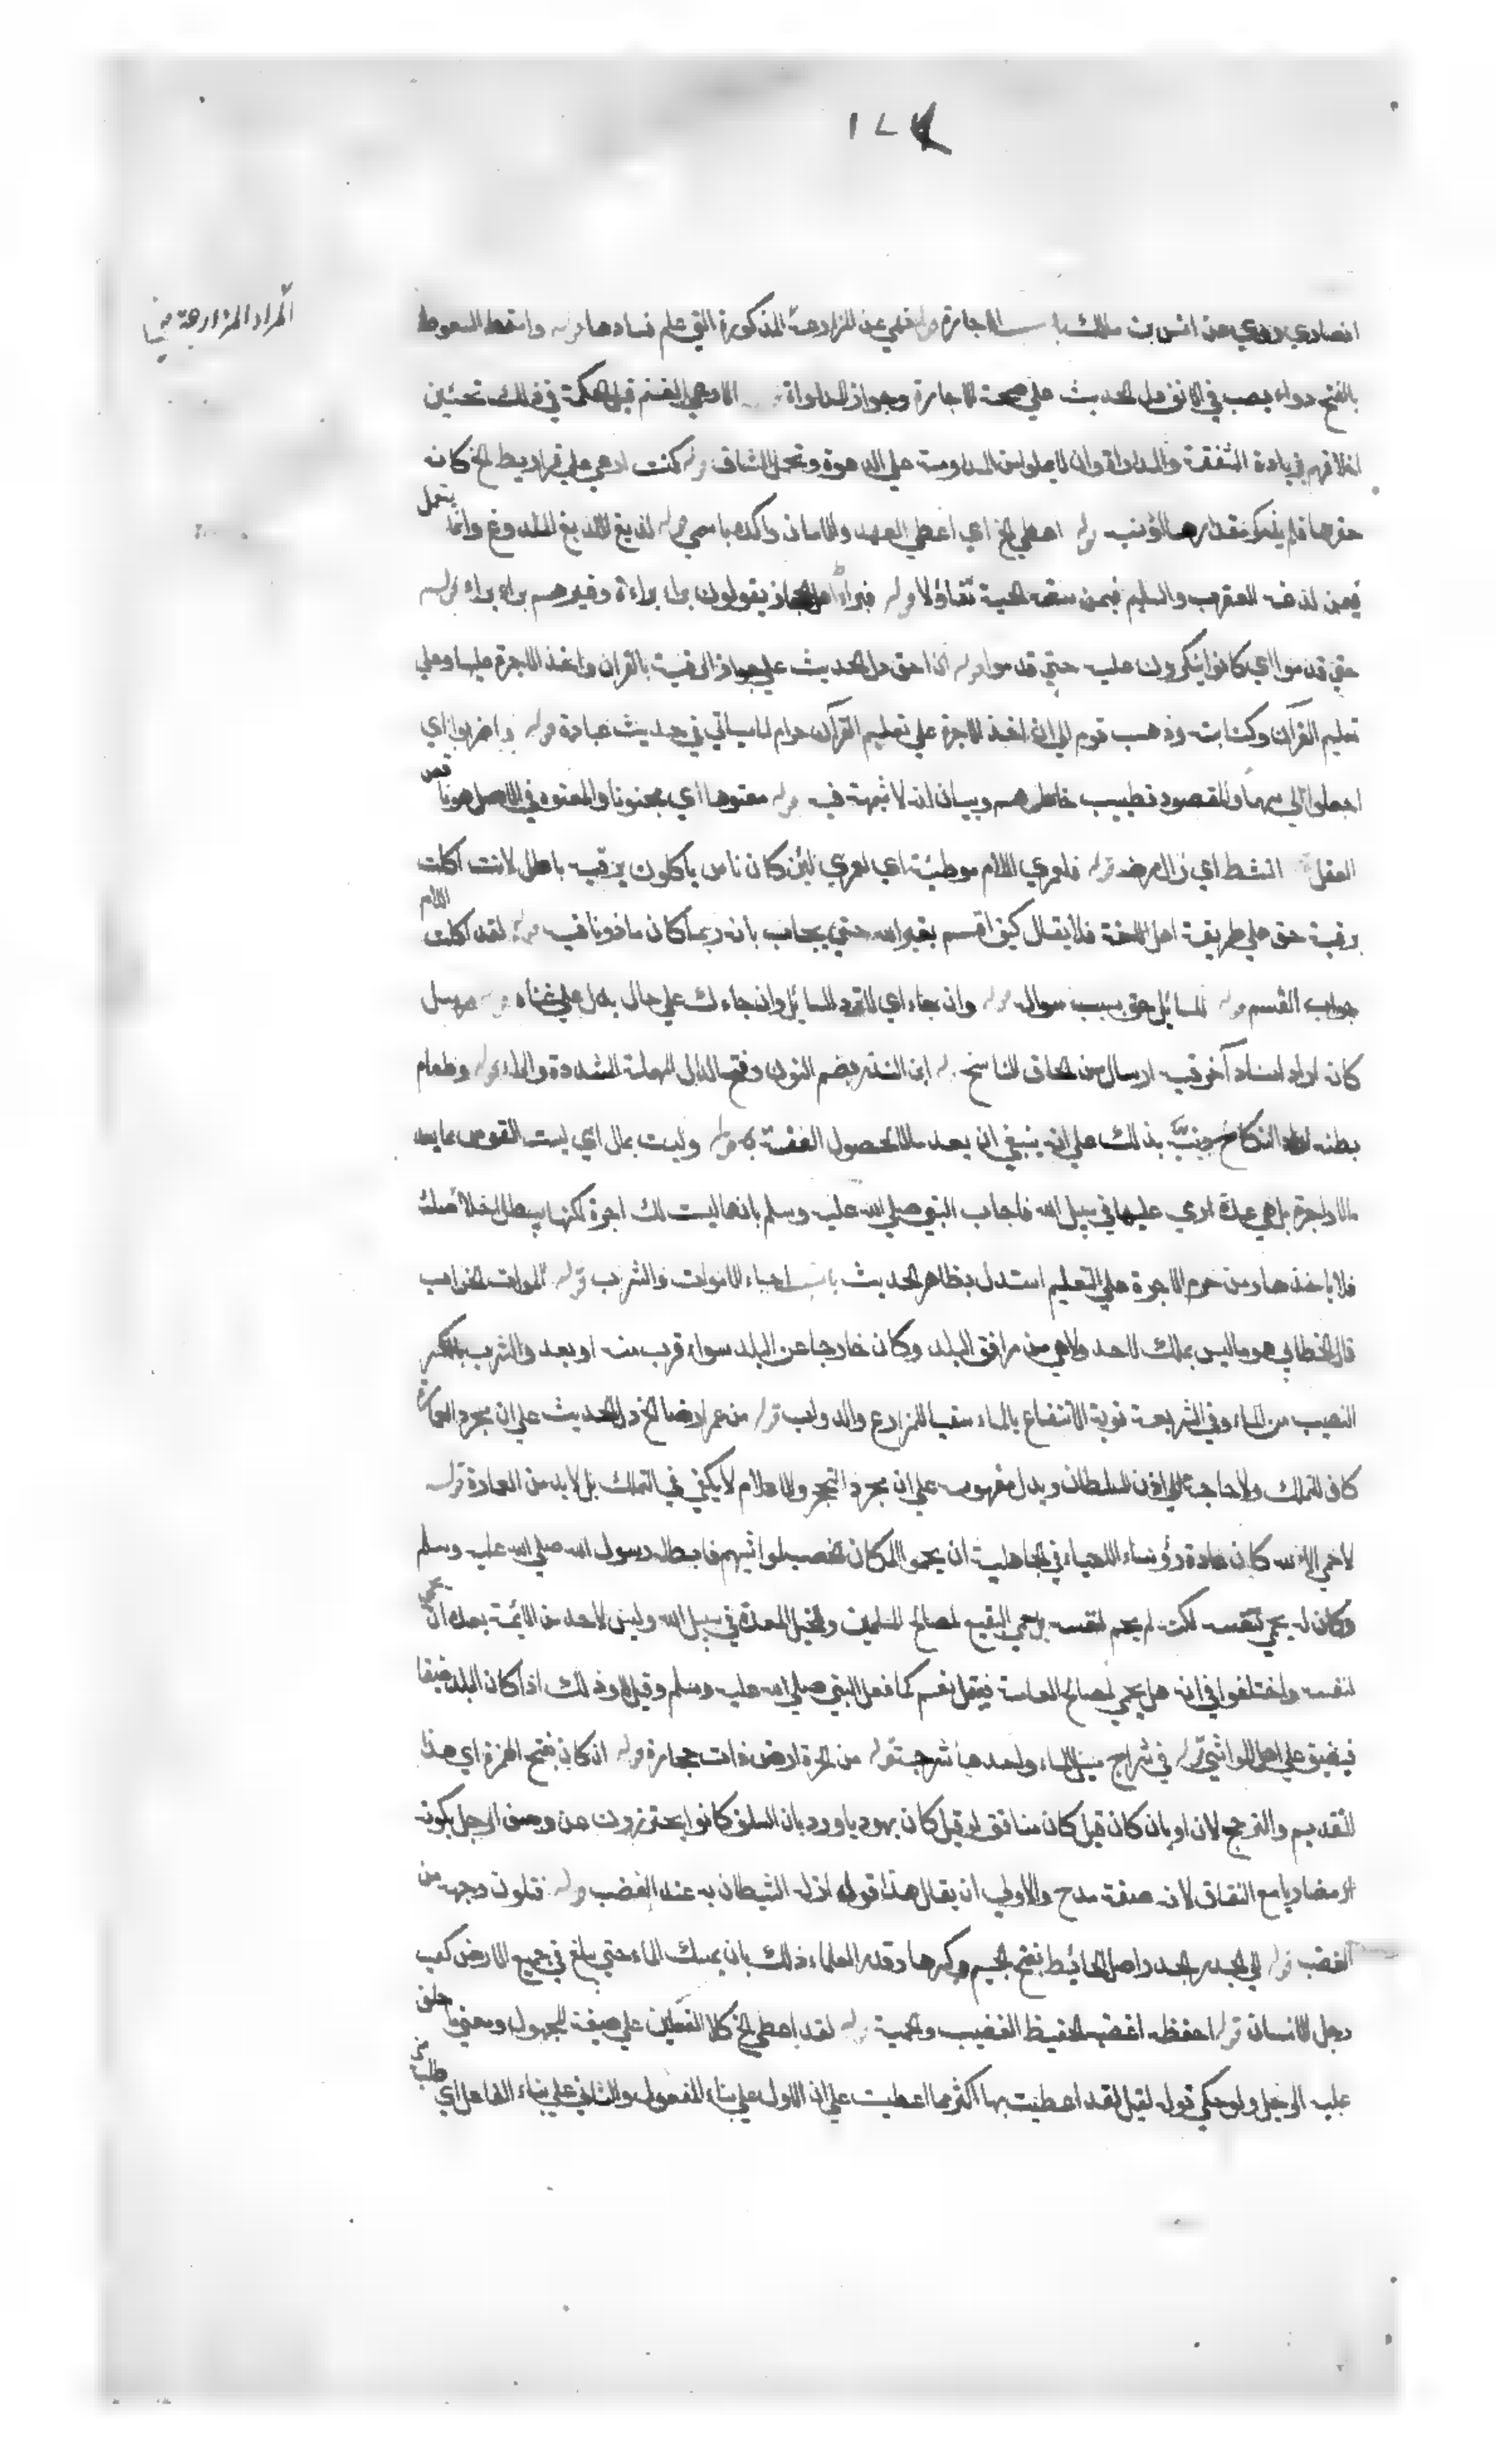 ١٧٨
المراد المزارعة
انصاري روي عن انس بن مالك باب الاجارة قوله نهي عن المزارعة المذكورة التي علم فسادها قوله واستعط السعوط
بالفتح دواء يصب في الانف دل الحديث علي صحة الاجارة وجواز المداواة الا رعي الغنم قيل الحكمة في ذلك تحسين
اخلاقهم زيادة الشفقة والمداراة وان المداومة علي الدعوة وتحمل المشاق قوله كنت ارعي علي قراريط الخ كان
حقرها فلم يذكر مقدارها قوله اعطي الخ اي اعطي العهد والامان واكده باسمي قوله لديغ اللديغ الملدوغ وانما يستعمل
فيمن لدغه العقرب والسليم فيمن تفاؤلا قوله فبرأ اهل الحجاز يقولون براء براءة وغيرهم براء قوله
حتي قدموا اي كانوا ينكرون عليه حتي قدموا قوله ان احق دل الحديث علي جواز الرقية بالقران واخذ الاجرة عليها وعلي
تعليم القرآن وكتابته وذهب قوم الي ان اخذ الاجرة علي تعليم القرآن حرام لما سياتي في حديث عبادة قوله واضربوا اي
اجعلوا لي سهما والمقصود تطييب خاطرهم وبيان انه لا شبهة فيه قوله معتوها اي مجنونا والمعتوه في الاصل هو ناقص
العقل انشط اي قوله فلعمري اللام موطئة اي لعمري لئن كان ناس ياكلون برقية باطل لانت اكلت
برقية حق علي طريقة اهل اللغة فلا يقال كيف اقسم بغير الله حتي يجاب بانه ربما كان ماذونا فيه قوله لقد اكلت اللام
جواب القسم قوله للسائل حق بسبب سواله قوله وان جاء اي السائل وان جاءك علي حال يدل علي غناه قوله مرسل
كان اسناد آخر فيه ارسال من الحاق الناسخ قوله ابن الندر بضم النون وفتح الدال المهملة المشددة والراء قوله وطعام
بطنه النكاح بذلك علي انه ينبغي ان يعد مالا لحصول العفة به قوله وليست بمال اي ليست القوس مما يعد
مالا واجرة بل هي عدة ارمي عليها في سبيل الله فاجاب النبي صلي الله عليه وسلم بانها ليست لك اجرة لكنها يبطل اخلاصك
فلا ياخذها ومن حرم الاجرة علي التعليم استدل بظاهر الحديث باب احياء الاموات والشرب قوله الموات الخراب
قال الخطابي هو ما ليس بملك لاحد ولا هي من مرافق البلد وكان خارجا عن البلد سواء قرب منه او بعد والشرب بالكسر
النصيب من الماء وفي الشريعة نوبة الانتفاع بالماء سقيا للمزارع والدواب قوله من عمر ارضا الخ دل الحديث علي ان مجرد العمارة
كاف للتملك ولا حاجة الي اذن السلطان ويدل مفهومه علي ان مجرد التحجر والاعلام لا يكفي في التملك بل لابد من العمارة قوله
لا حمي الا لله كان عادة رؤساء الاحياء في الجاهلية ان يحموا المكان الخصب لمواشيهم فابطله رسول الله صلي الله عليه وسلم
وكان له يحمي لنفسه لكنه لم يحم لنفسه بل حمي البقيع لمصالح المسلمين والخيل المعدة في سبيل الله وليس لاحد من الائمة بعده ان يحمي
لنفسه واختلفوا في انه هل يحمي لمصالح العامة فقيل نعم كما فعل النبي صلي الله عليه وسلم وقيل لا وذلك اذا كان البلد ضيقا
فيضيق علي اهل المواشي قوله في شراج مسيل الماء واحدها شرجة قوله من الحرة ارض ذات حجارة قوله ان كان بفتح الهمزة اي هذا
التقديم والترجيح لان او بان كان قيل كان منافق او قيل كان يهوديا ورد بان السلف كانوا يحترزون عن وصف الرجل بكونه
انصاريا مع النفاق لانه صفة مدح والاولي ان يقال هذا قول ازله الشيطان به عند الغضب قوله فتلون وجهه من
الغضب قوله الي الجدر الجدر اصل الحائط بفتح الجيم وكسرها وقدره العلماء ذلك بان يمسك الماء حتي يبلغ في جميع الارض كعب
رجل الانسان قوله احفظه اغضبه الحفيظ الغضيب والحمية قوله لقد اعطي الخ كلا الفعلين علي صيغة المجهول ومعني ما حلف
عليه الرجل ولو حكي قوله لقيل لقد اعطيت بها اكثر مما اعطيت علي ان الاول علي بناء المفعول والثاني علي بناء الفاعل اي طلب